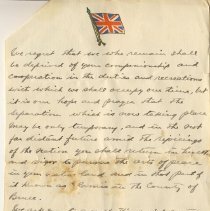 We regret that we who remain shall
be deprived of your companionship and
cooperation in the duties and recreations
with which we shall occupy our time, but
it is our hope and prayer that the
separation which is now taking place
may be only temporary, and in the not
far distant future amid the rejoicings
of the Nation you shall return in health
and vigor to pursue the arts of peace
in your native land and in that part of
it known as Kinross in The County of
Bruce.